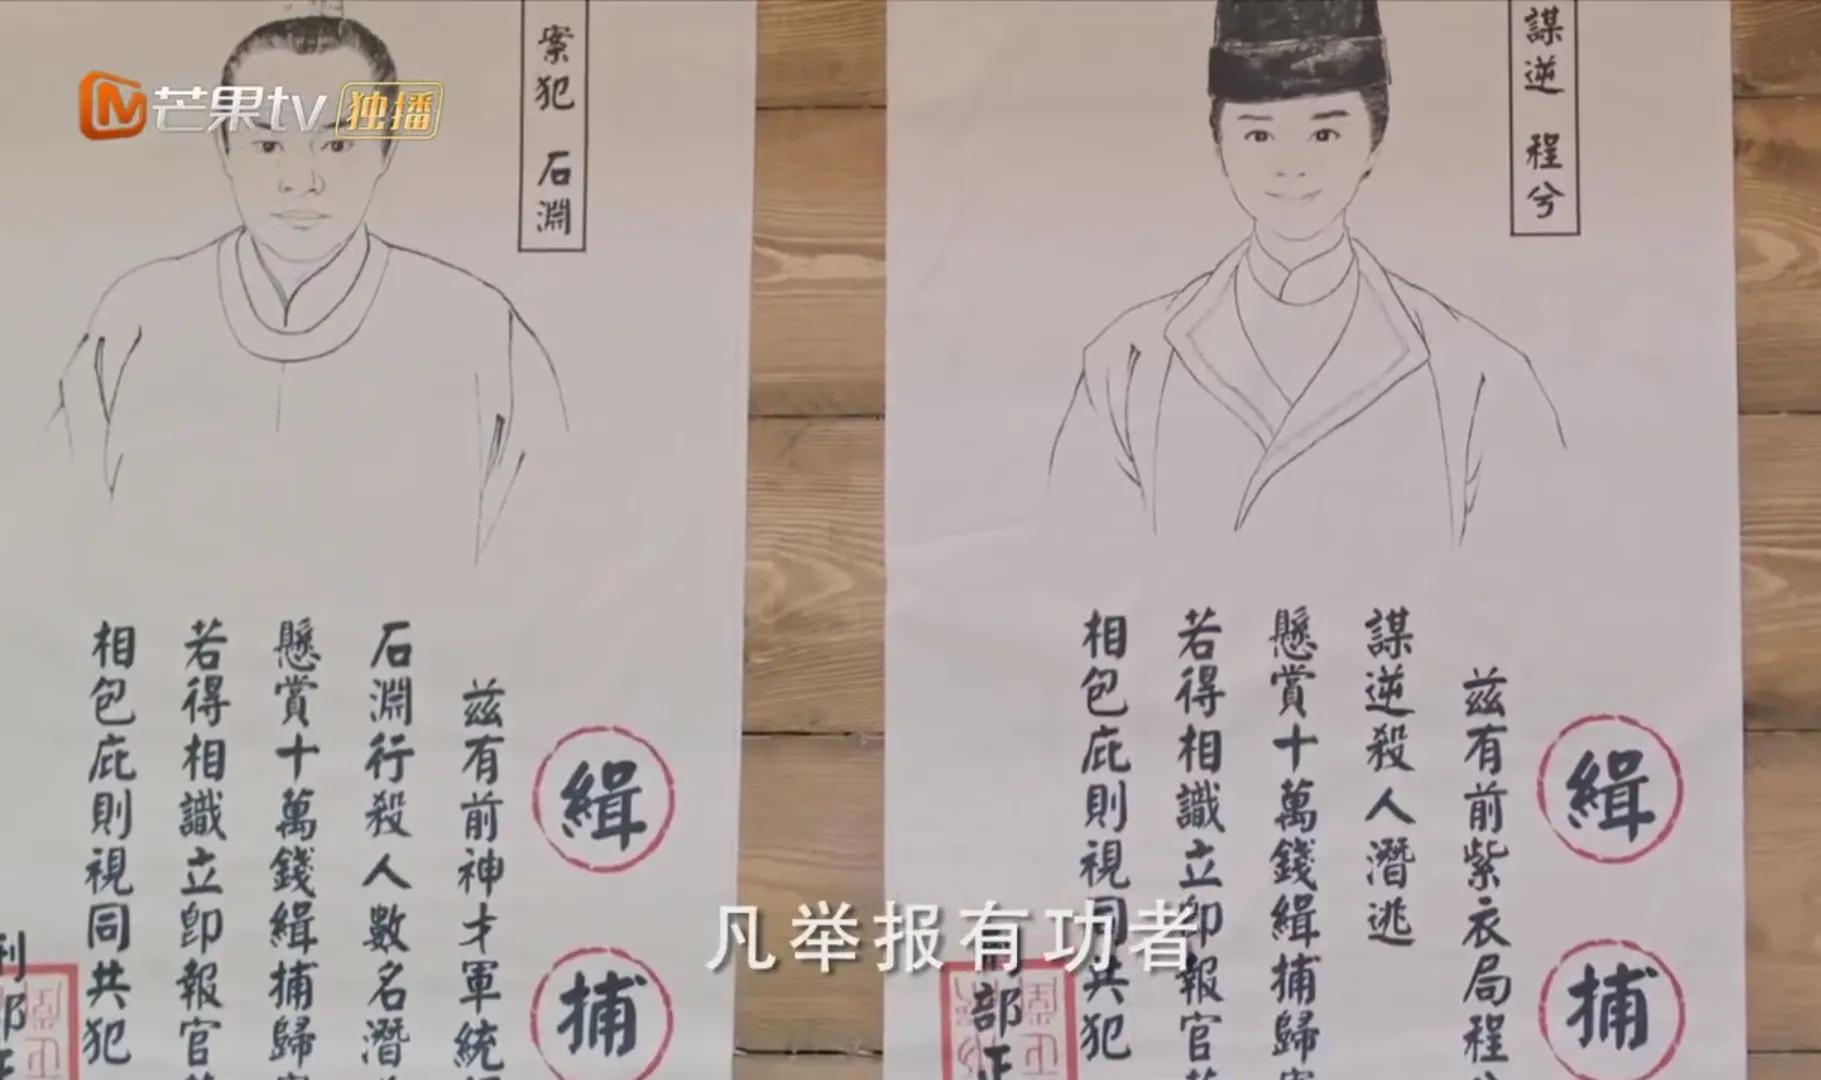 芒果tv 独播
謀逆 程兮
緝捕
茲有前紫衣局程
謀逆殺人潛逃
懸賞十萬錢緝捕歸
若得相識立即報官
相包庇則視同共犯
部正
案犯 石淵
緝捕
茲有前神才軍統
石淵行殺人數名潛
懸賞十萬錢緝捕歸
若得相識立即報官
相包庇則視同共犯
凡举报有功者